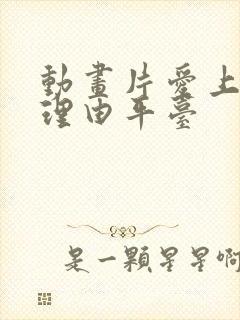 動畫片愛上
理由平臺
是一顆星星啊